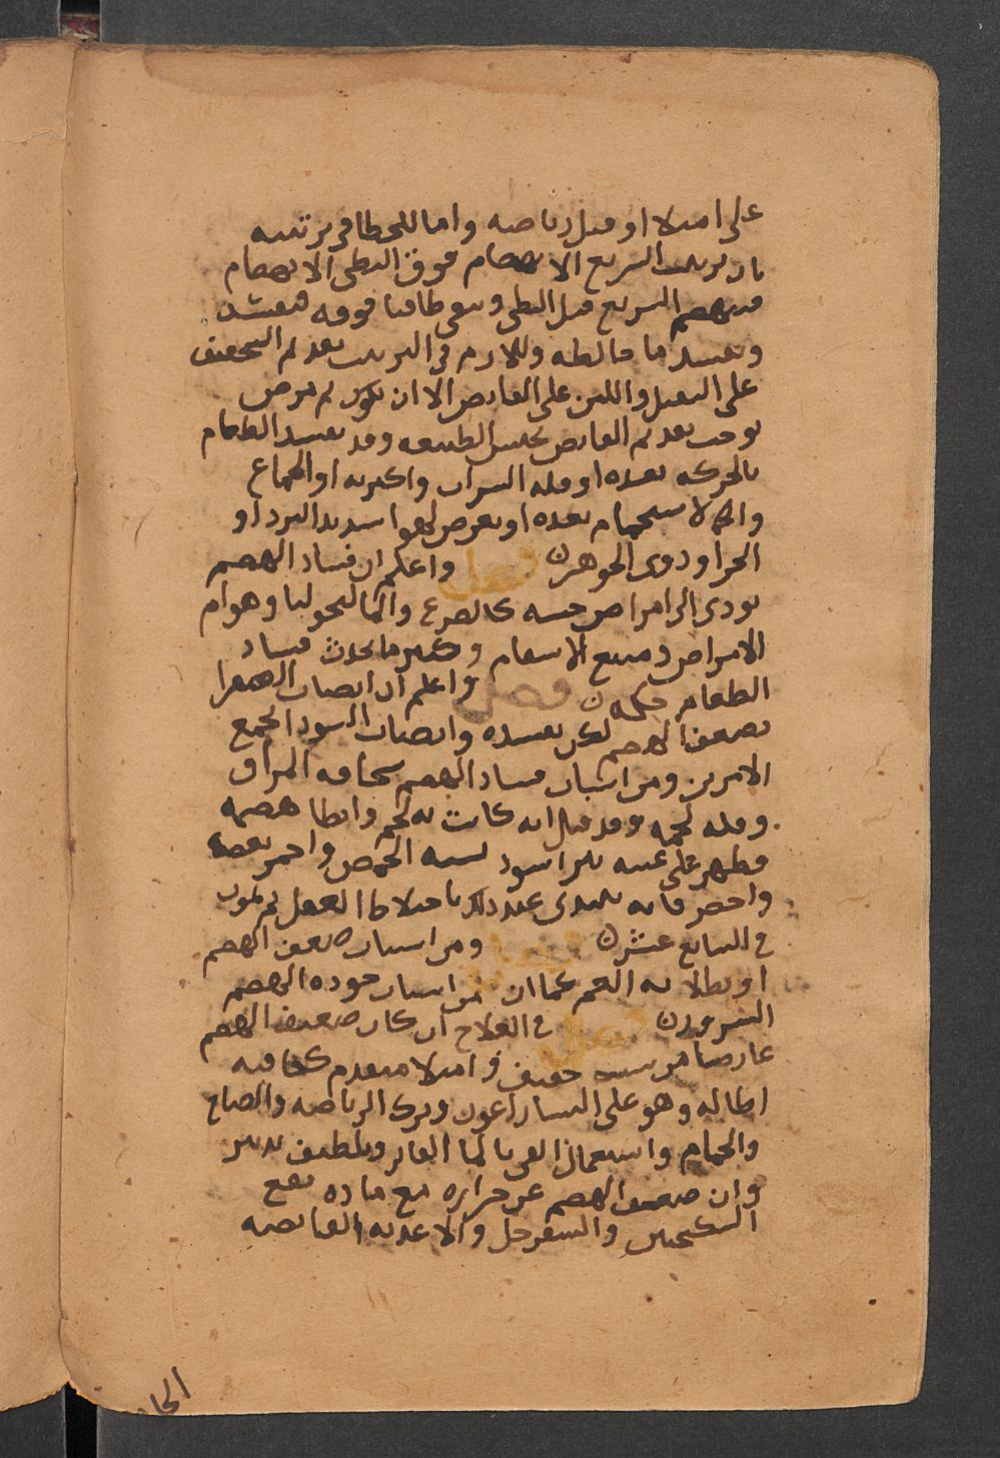 على امتلا او قبل رياضه واما للخطا في ترتيبه
بان يرتب السريع الانهضام فوق البطي الانهضام
فينهضم السريع قبل البطي ويبقى طافيا فوقه فيفسد
ويفسد ما خالطه واللازم في الترتيب تقديم الخفيف
على الثقيل واللين على القابض الا ان يكون ثم مرض
يوجب تقديم القابض لحبس الطبيعه وقد يفسد الطعام
بالحركه بعده او قله الشراب واكثريه او الجماع
والاستحمام بعده او تعرض لهوا شديد البرد او
الحر او ردى الجوهر فصل واعلم ان فساد الهضم
يودى الى امراض خبيثه كالصرع والمالنخوليا وهو ام
الامراض ومنبع الاسقام وكثير ما يحدث فساد
الطعام حكه فصل واعلم ان انصباب الصفرا
يضعف الهضم لكن يفسده وانصباب السودا يجمع
الامرين ومن اسباب فساد الهضم سخافه المراق
وقله لحمه وقد قيل انه كانت به تخم وابطا هضمه
فظهر على عينه بثر اسود يشبه الحمص واحمر بعضه
واخضر فانه يبتدى عند ذلك باختلاط العقل ثم يموت
في السابع عشر ومن اسباب ضعف الهضم
او بطلانه الغم كما ان من اسباب جوده الهضم
السرور فصل في العلاج ان كان ضعف الهضم
عارضا من سبب خفيف و امتلا متقدم كفا فيه
اطاله وهو على اليسار اعون وترك الرياضه والصياح
والحمام واستعمال القى بالما الفاتر وتلطيف تدبير
وان ضعف الهضم عن حراره مع ماده نفع
السكنجبين والسفرجل والاغذيه القابضه
الحا